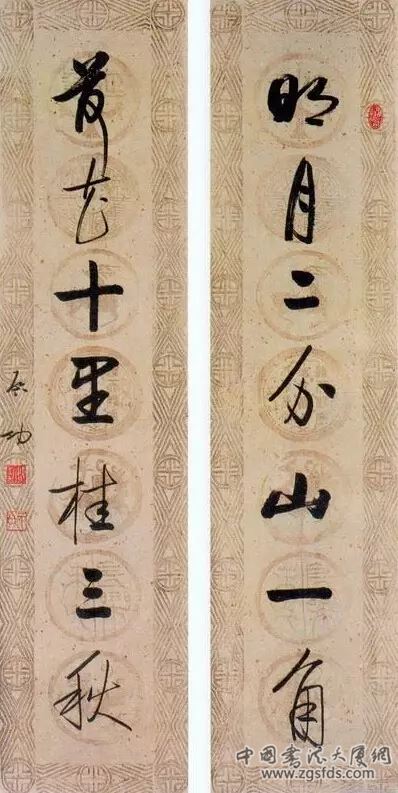 明月二分山一角
荷花十里桂三秋
启功
中国书法大厦网
www.zgsfds.com